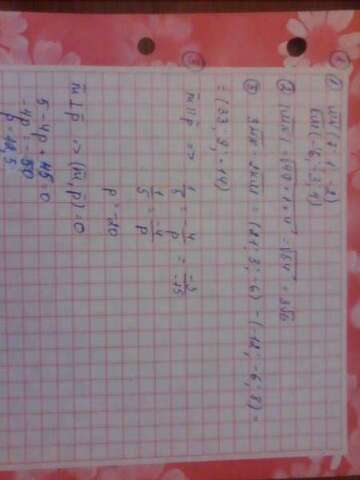 ① (7; 1; -2)
(-6; -3; 4)
② = √49+1+4 = √54 = 3√6
③ = (21; 3; -6) - (-12; -6; 8) =
= (33; 9; -14)
m̄ || p̄ => 1/5 = -4/p = -3/-15
1/5 = -4/p
p = -20
m̄ ⊥ p̄ => (m̄, p̄) = 0
5 - 4p + 45 = 0
-4p = -50
p = 12,5